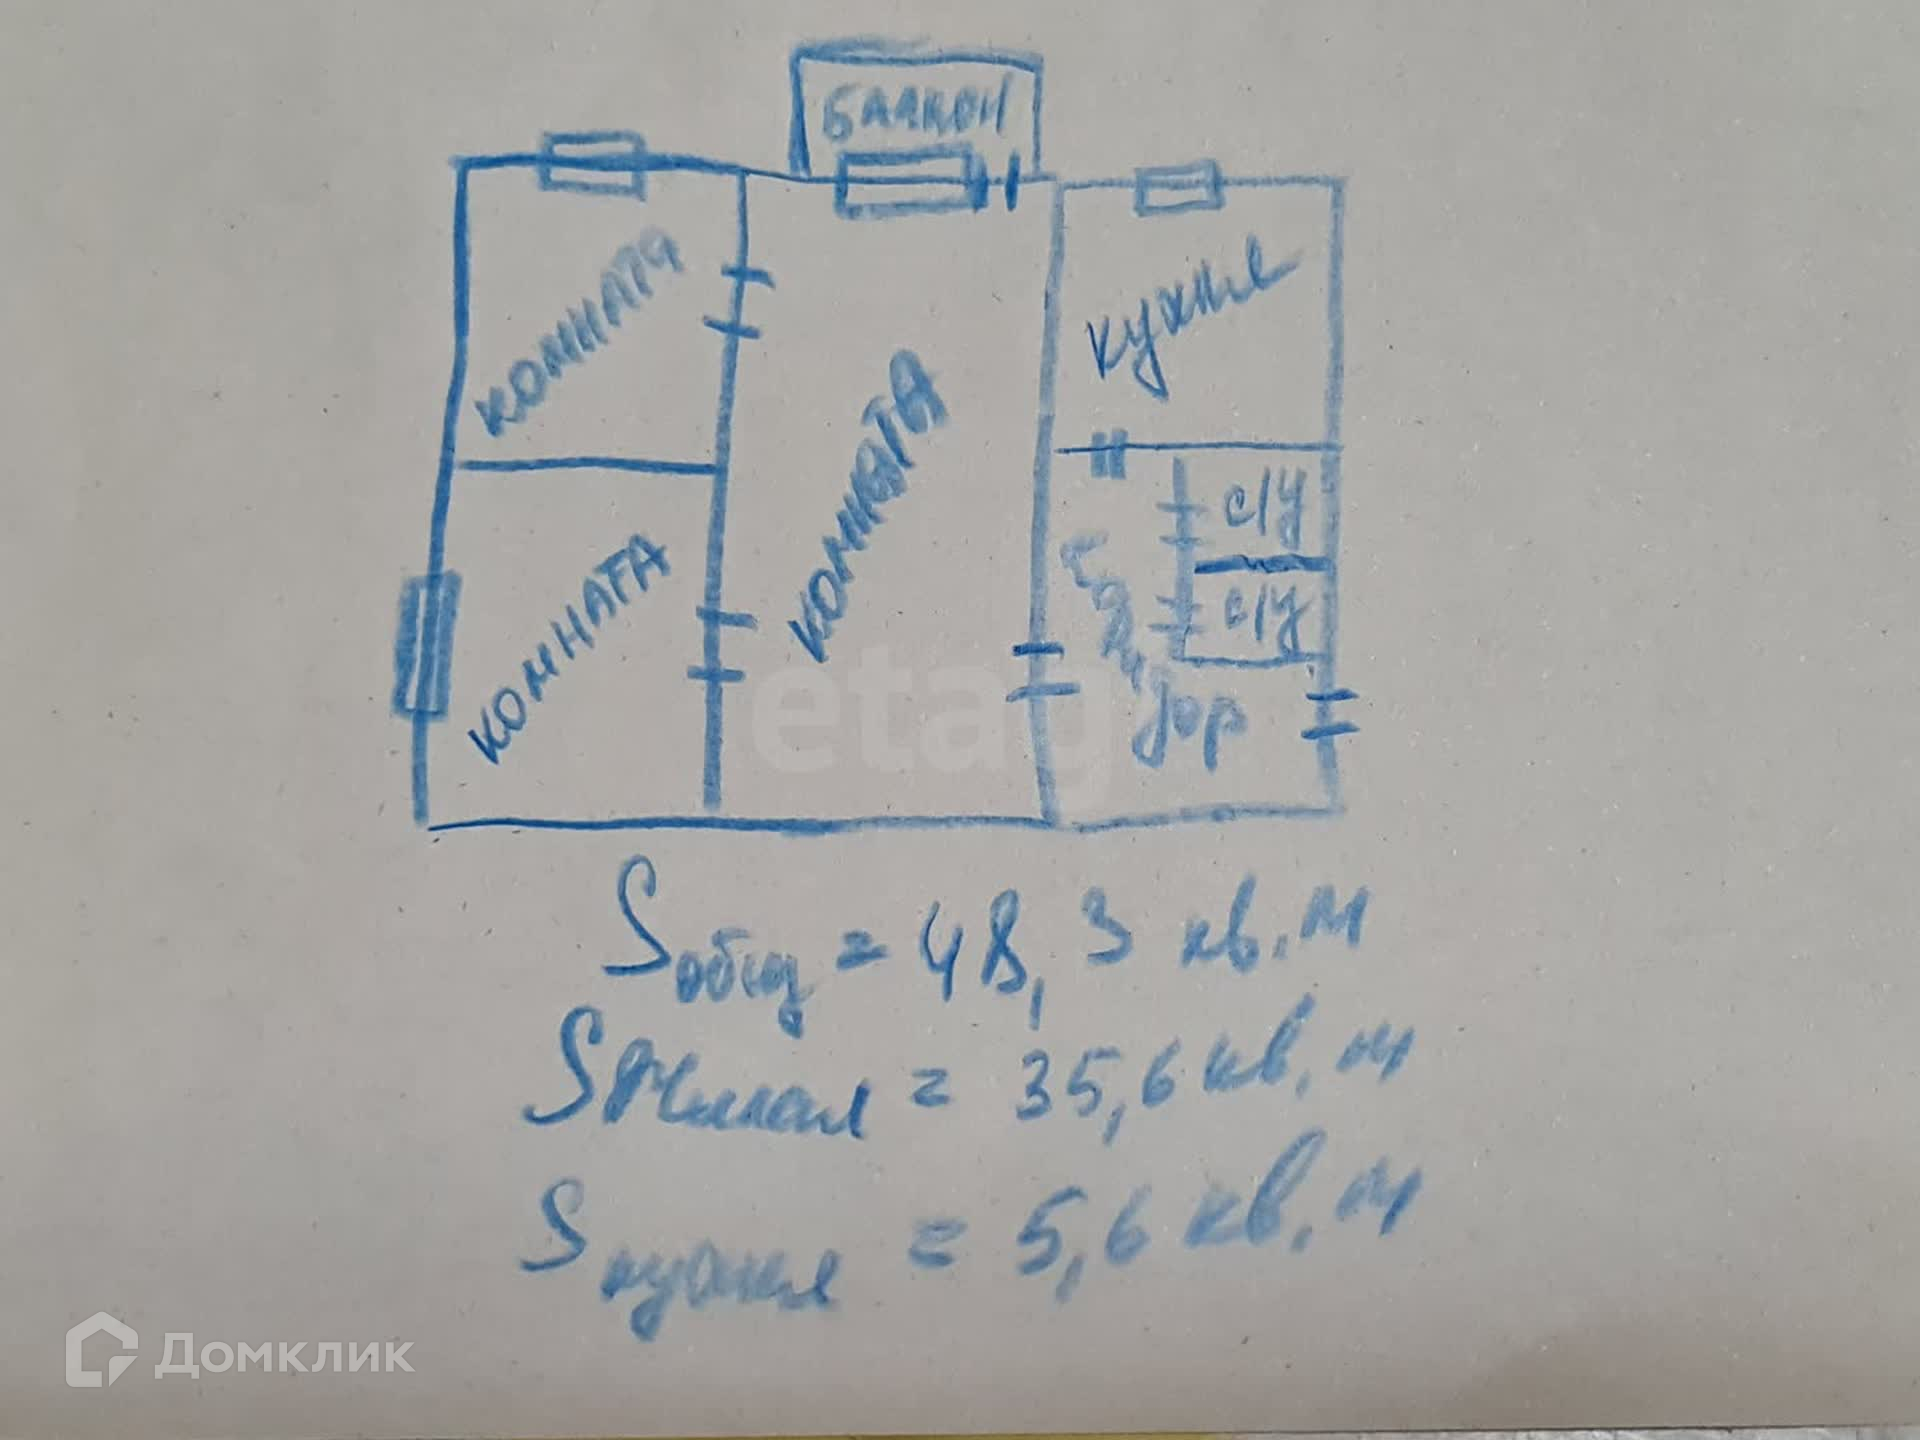 БАЛКОН
КОМНАТА
кухня
КОМНАТА
с/у
КОМНАТА
с/у
коридор
etagi
Sобщ = 48,3 кв.м
Sжилая = 35,6 кв.м
Sкухня = 5,6 кв.м
Домклик